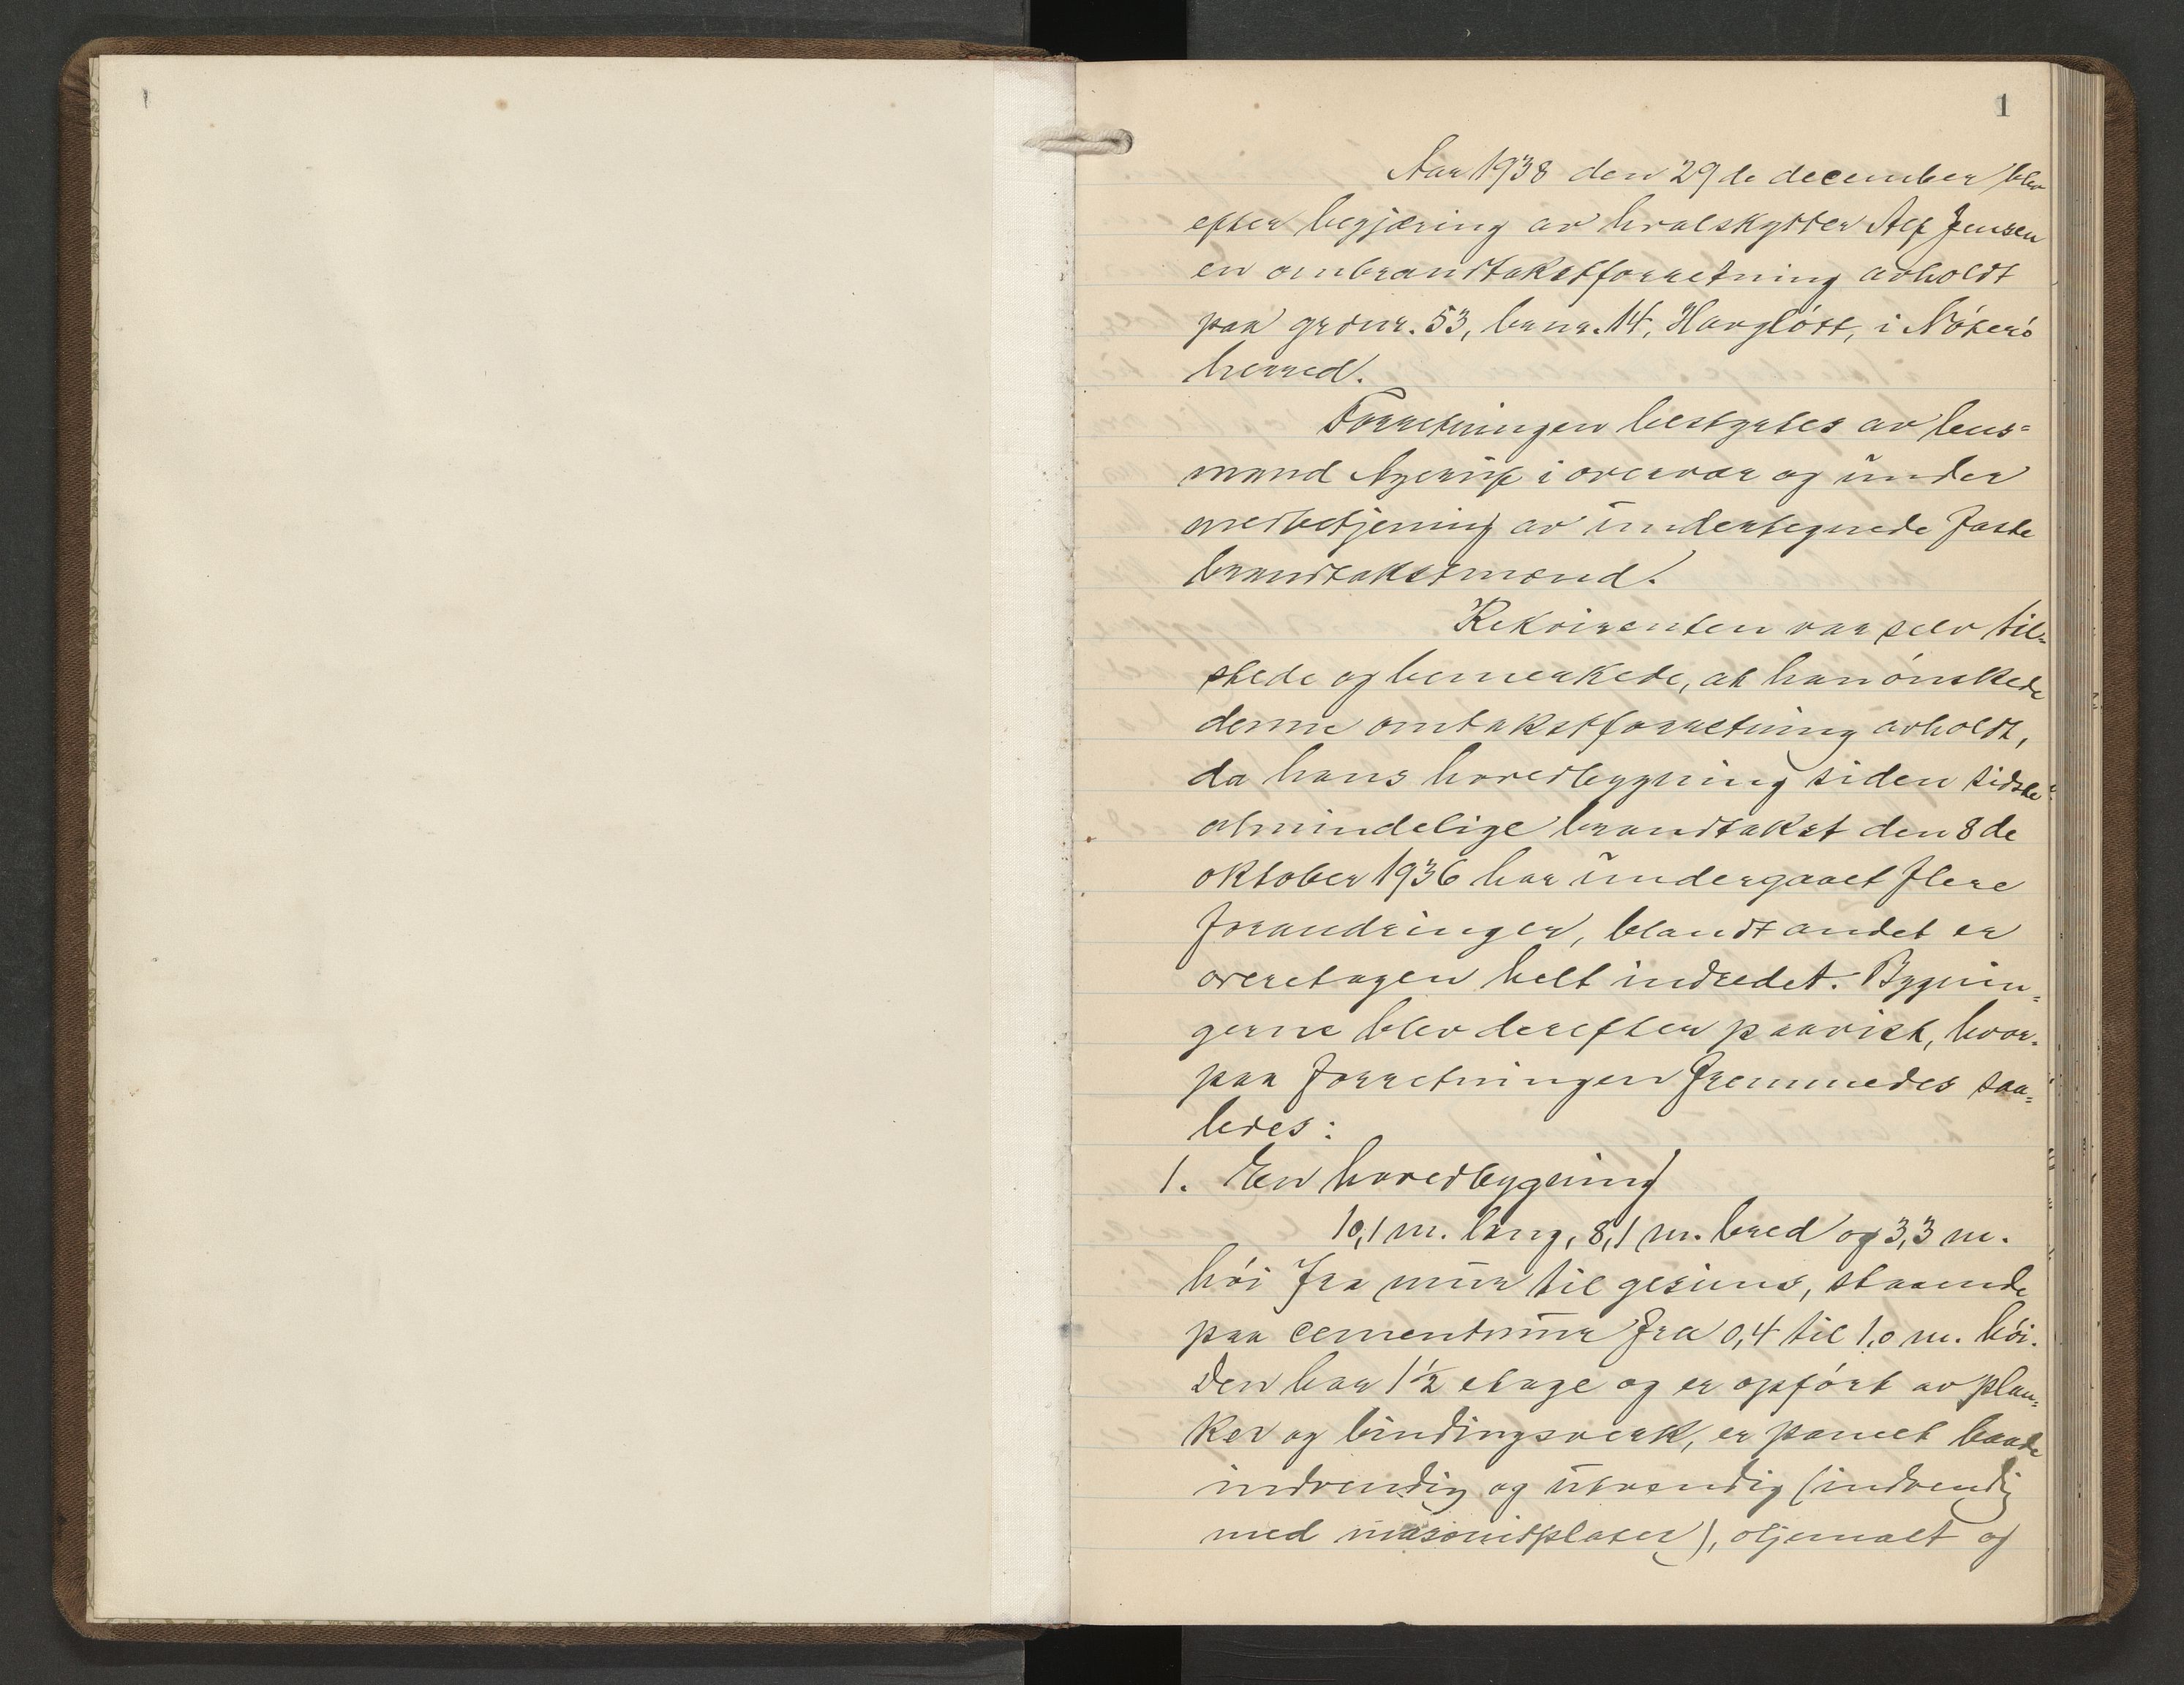 1
Aar 1938 den 29de december blev
efter begjæring av hvalskytter Alf Jensen
en ombrandtakstforretning avholdt
paa grdnr. 53, brnr. 14, Havgløtt, i Nøterø
herred.
Forretningen bestyrtes av lens=
mand i overvær og under
medbetjening av undertegnede faste
brandtakstmænd.
Rekvirenten var selv til=
stede og bemerkede, at han ønskede
denne omtakstforretning avholdt,
da hans hovedbygning siden sidste
almindelige brandtakst den 8de
oktober 1936 har undergaaet flere
forandringer, blandt andet er
overetagen helt indredet. Bygnin=
gerne blev derefter paavist, hvor=
paa forretningen fremmedes saa=
ledes:
1. En hovedbygning
10,1 m. lang, 8,1 m. bred og 3,3 m.
høi fra mur til gesims, staaende
paa cementmur fra 0,4 til 1,0 m. høi.
Den har 1½ etage og er opført av plan=
ker og bindingsverk, er panelt baade
indvendig og utvendig (indvendig
med masonitplater), oljemalt og